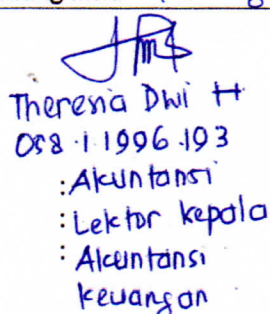 Theresia Dwi H
058.1.1996.193
: Akuntansi
: Lektor kepala
: Akuntansi
keuangan